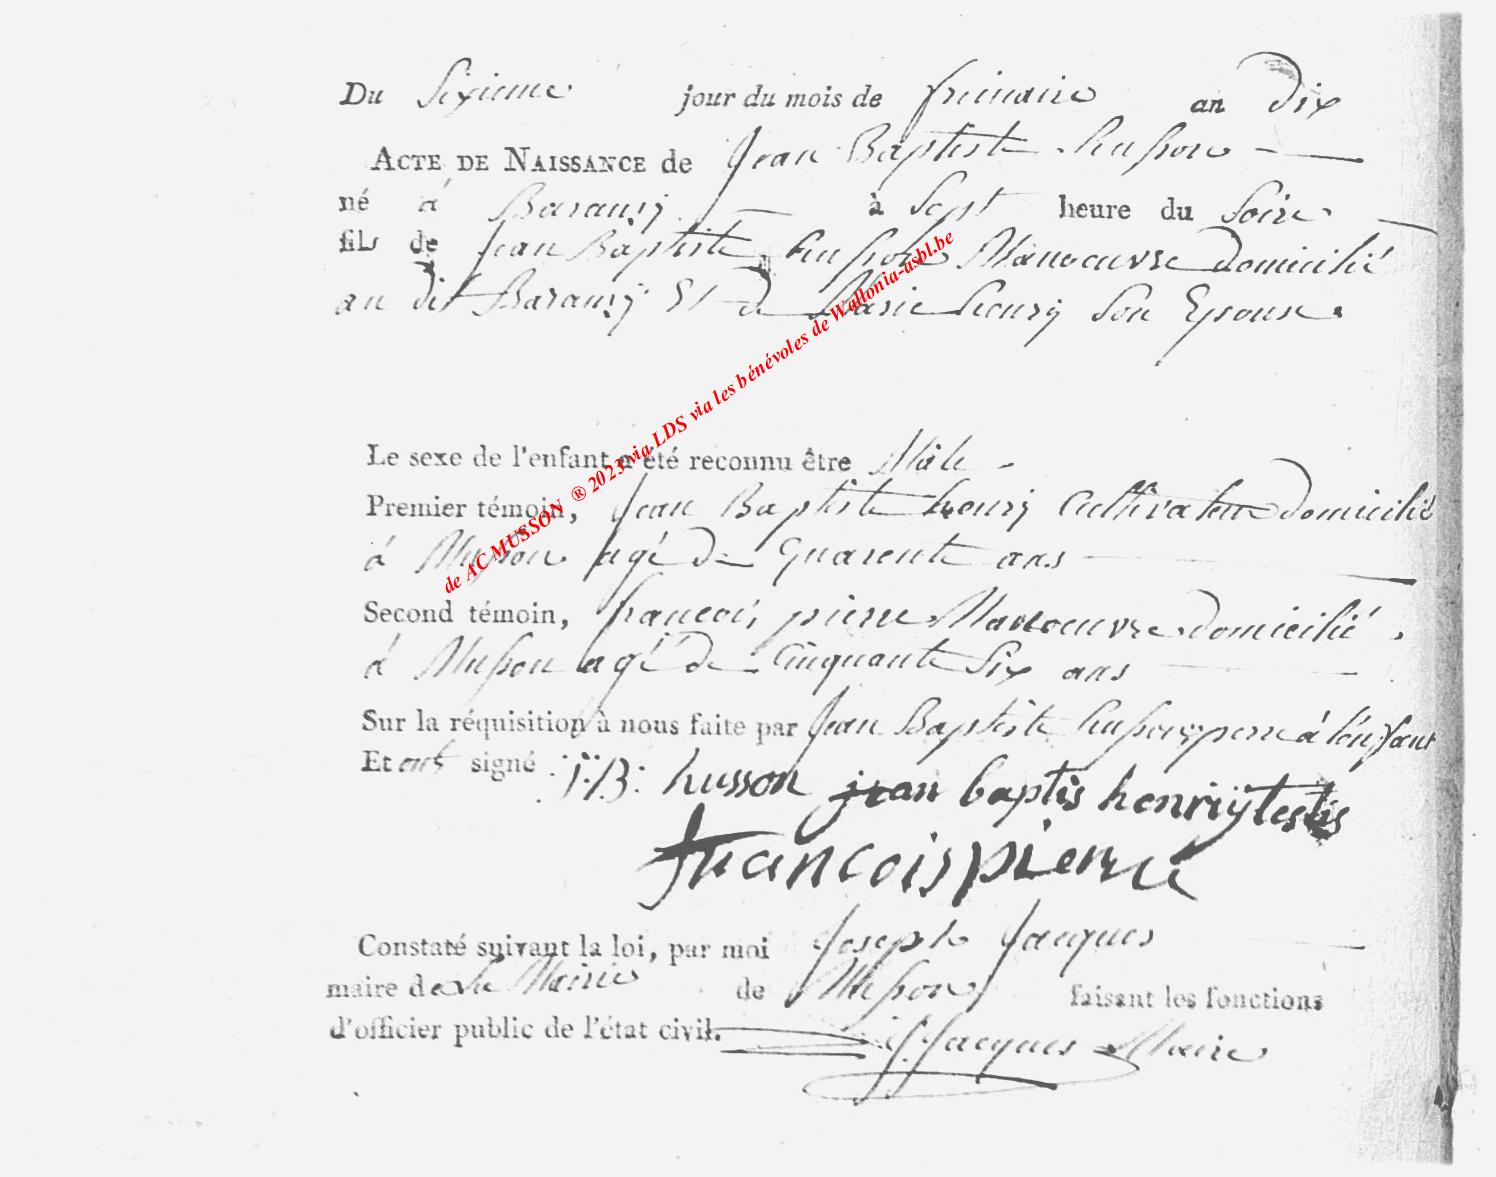 Du Sixieme jour du mois de frimaire an Dix
ACTE DE NAISSANCE de Jean Baptiste husson
né à Baranzy à Sept heure du Soire
fils de Jean Baptiste husson Manoeuvre Domicilié
au dit Baranzÿ Et de Marie henry Son Epouse.
Le sexe de l'enfant a été reconnu être Mâle
Premier témoin, Jean Baptiste henry Cultivateur Domicilié
á Musson agé De Quarente ans
Second témoin, francois pierre Manoeuvre domicilié
á Musson agé De Cinquante Six ans
Sur la réquisition à nous faite par Jean Baptiste husson pere à l'enfant
Et ont signé J:B: husson jean baptis henrÿ testis
francois pierre
Constaté suivant la loi, par moi Joseph Jacques
maire de la Mairie de Musson faisant les fonctions
d'officier public de l'état civil. J. Jacques Maire
de AC MUSSON ® 2023 via LDS via les bénévoles de Wallonia-asbl.be